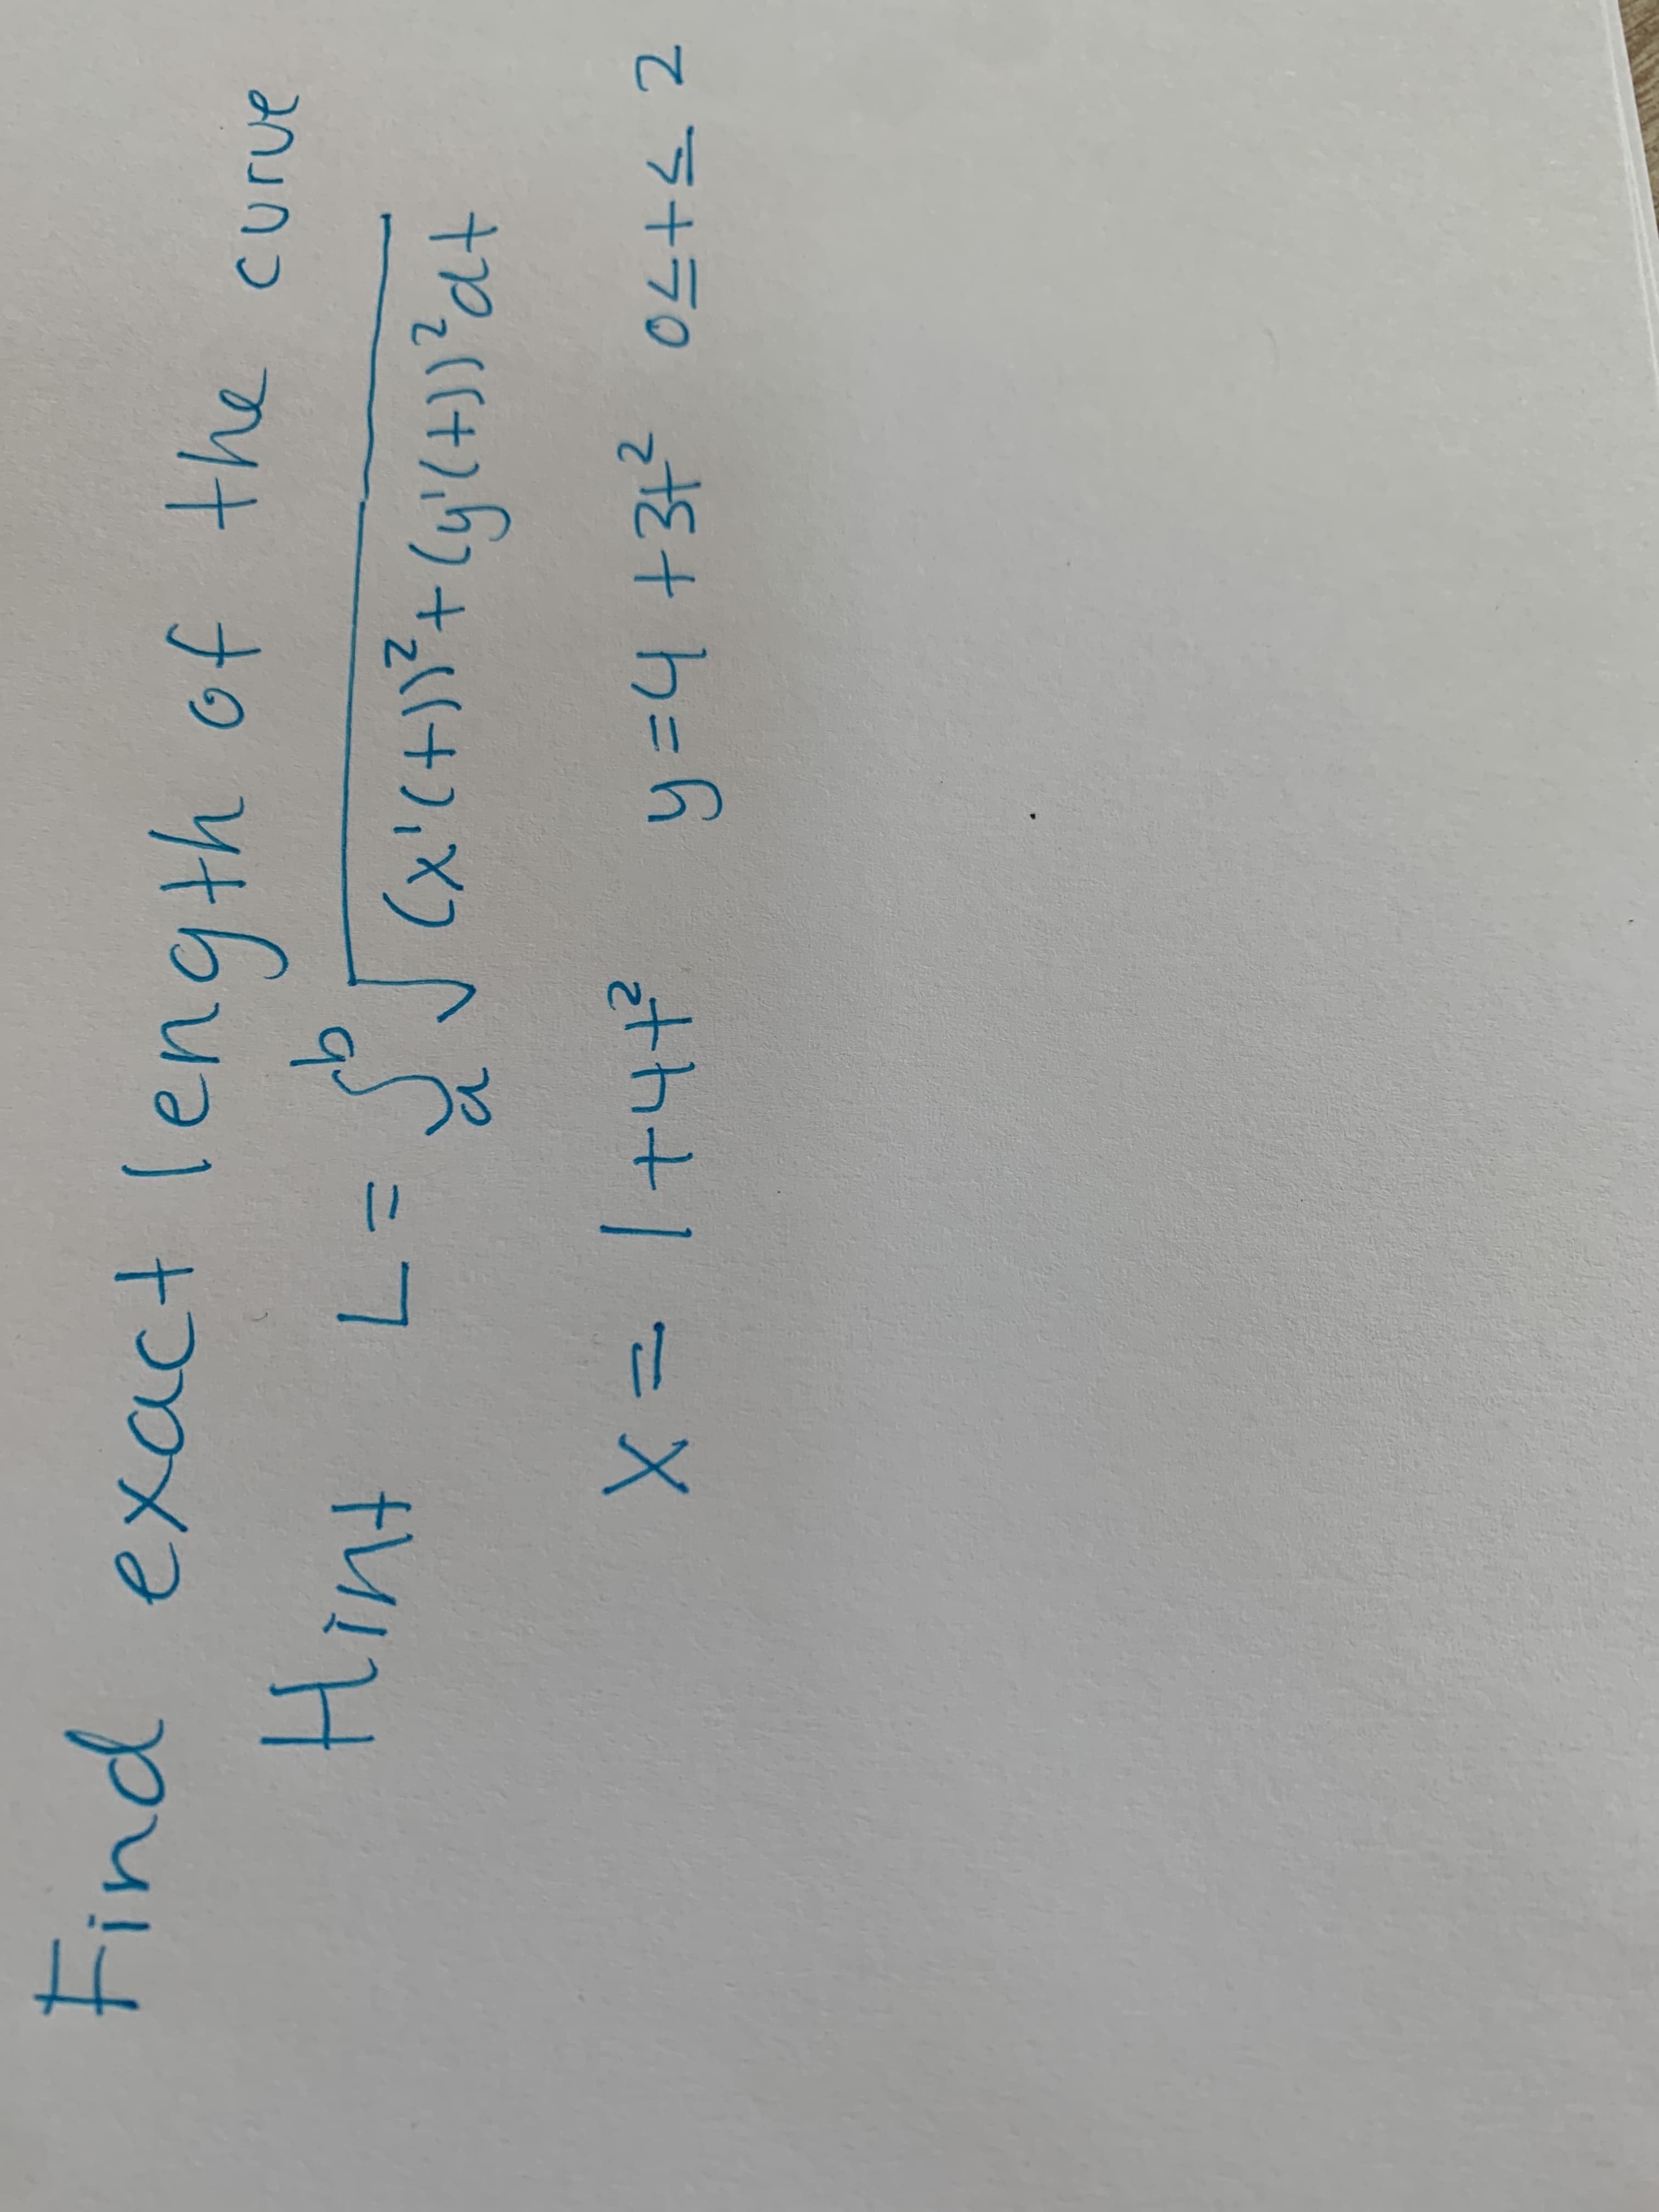 Find exact length of the curve
Hint L = ∫ₐᵇ √(x'(t))² + (y'(t))² dt
x = 1 + 4t² y = 4 + 3t² 0 ≤ t ≤ 2